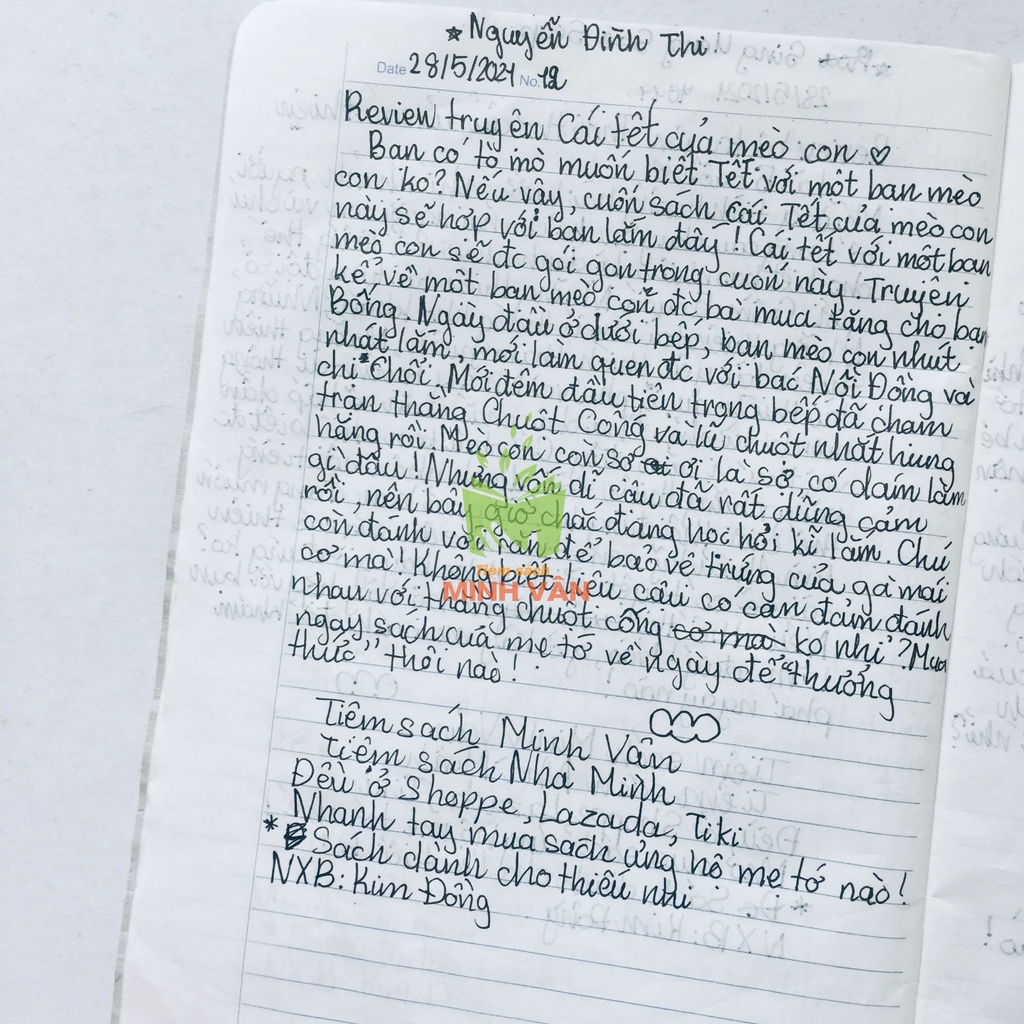 * Nguyễn Đình Thi
Date 28/5/2021 No. 12
Review truyện Cái tết của mèo con ♡
Bạn có tò mò muốn biết Tết với một bạn mèo
con ko? Nếu vậy, cuốn sách Cái Tết của mèo con
này sẽ hợp với bạn lắm đấy! Cái tết với một bạn
mèo con sẽ đc gói gọn trong cuốn này. Truyện
kể về một bạn mèo con đc bà mua tặng cho bạn
Bống. Ngày đầu ở dưới bếp, bạn mèo con nhút
nhát lắm, mới làm quen đc với bác Nồi Đồng và
chị Chổi. Mới đêm đầu tiên trong bếp đã chạm
trán thằng Chuột Cống và lũ chuột nhắt hung
hăng rồi. Mèo con còn sợ ơi là sợ có dám làm
gì đâu! Nhưng vốn dĩ cậu đã rất dũng cảm
rồi, nên bây giờ chắc đang học hỏi kĩ lắm. Chú
còn đánh với rắn để bảo vệ trứng của gà mái
cơ mà! Không biết liệu cậu có can đảm đánh
nhau với thằng chuột cống cơ mà ko nhỉ? Mua
ngay sách của mẹ tớ về ngày để "thưởng
thức" thôi nào!
Tiệm sách Minh Vân
Tiệm sách Nhà Mình
Đều ở Shoppe, Lazada, Tiki
Nhanh tay mua sách ủng hộ mẹ tớ nào!
* Sách dành cho thiếu nhi
NXB: Kim Đồng
Tiệm sách
MINH VÂN